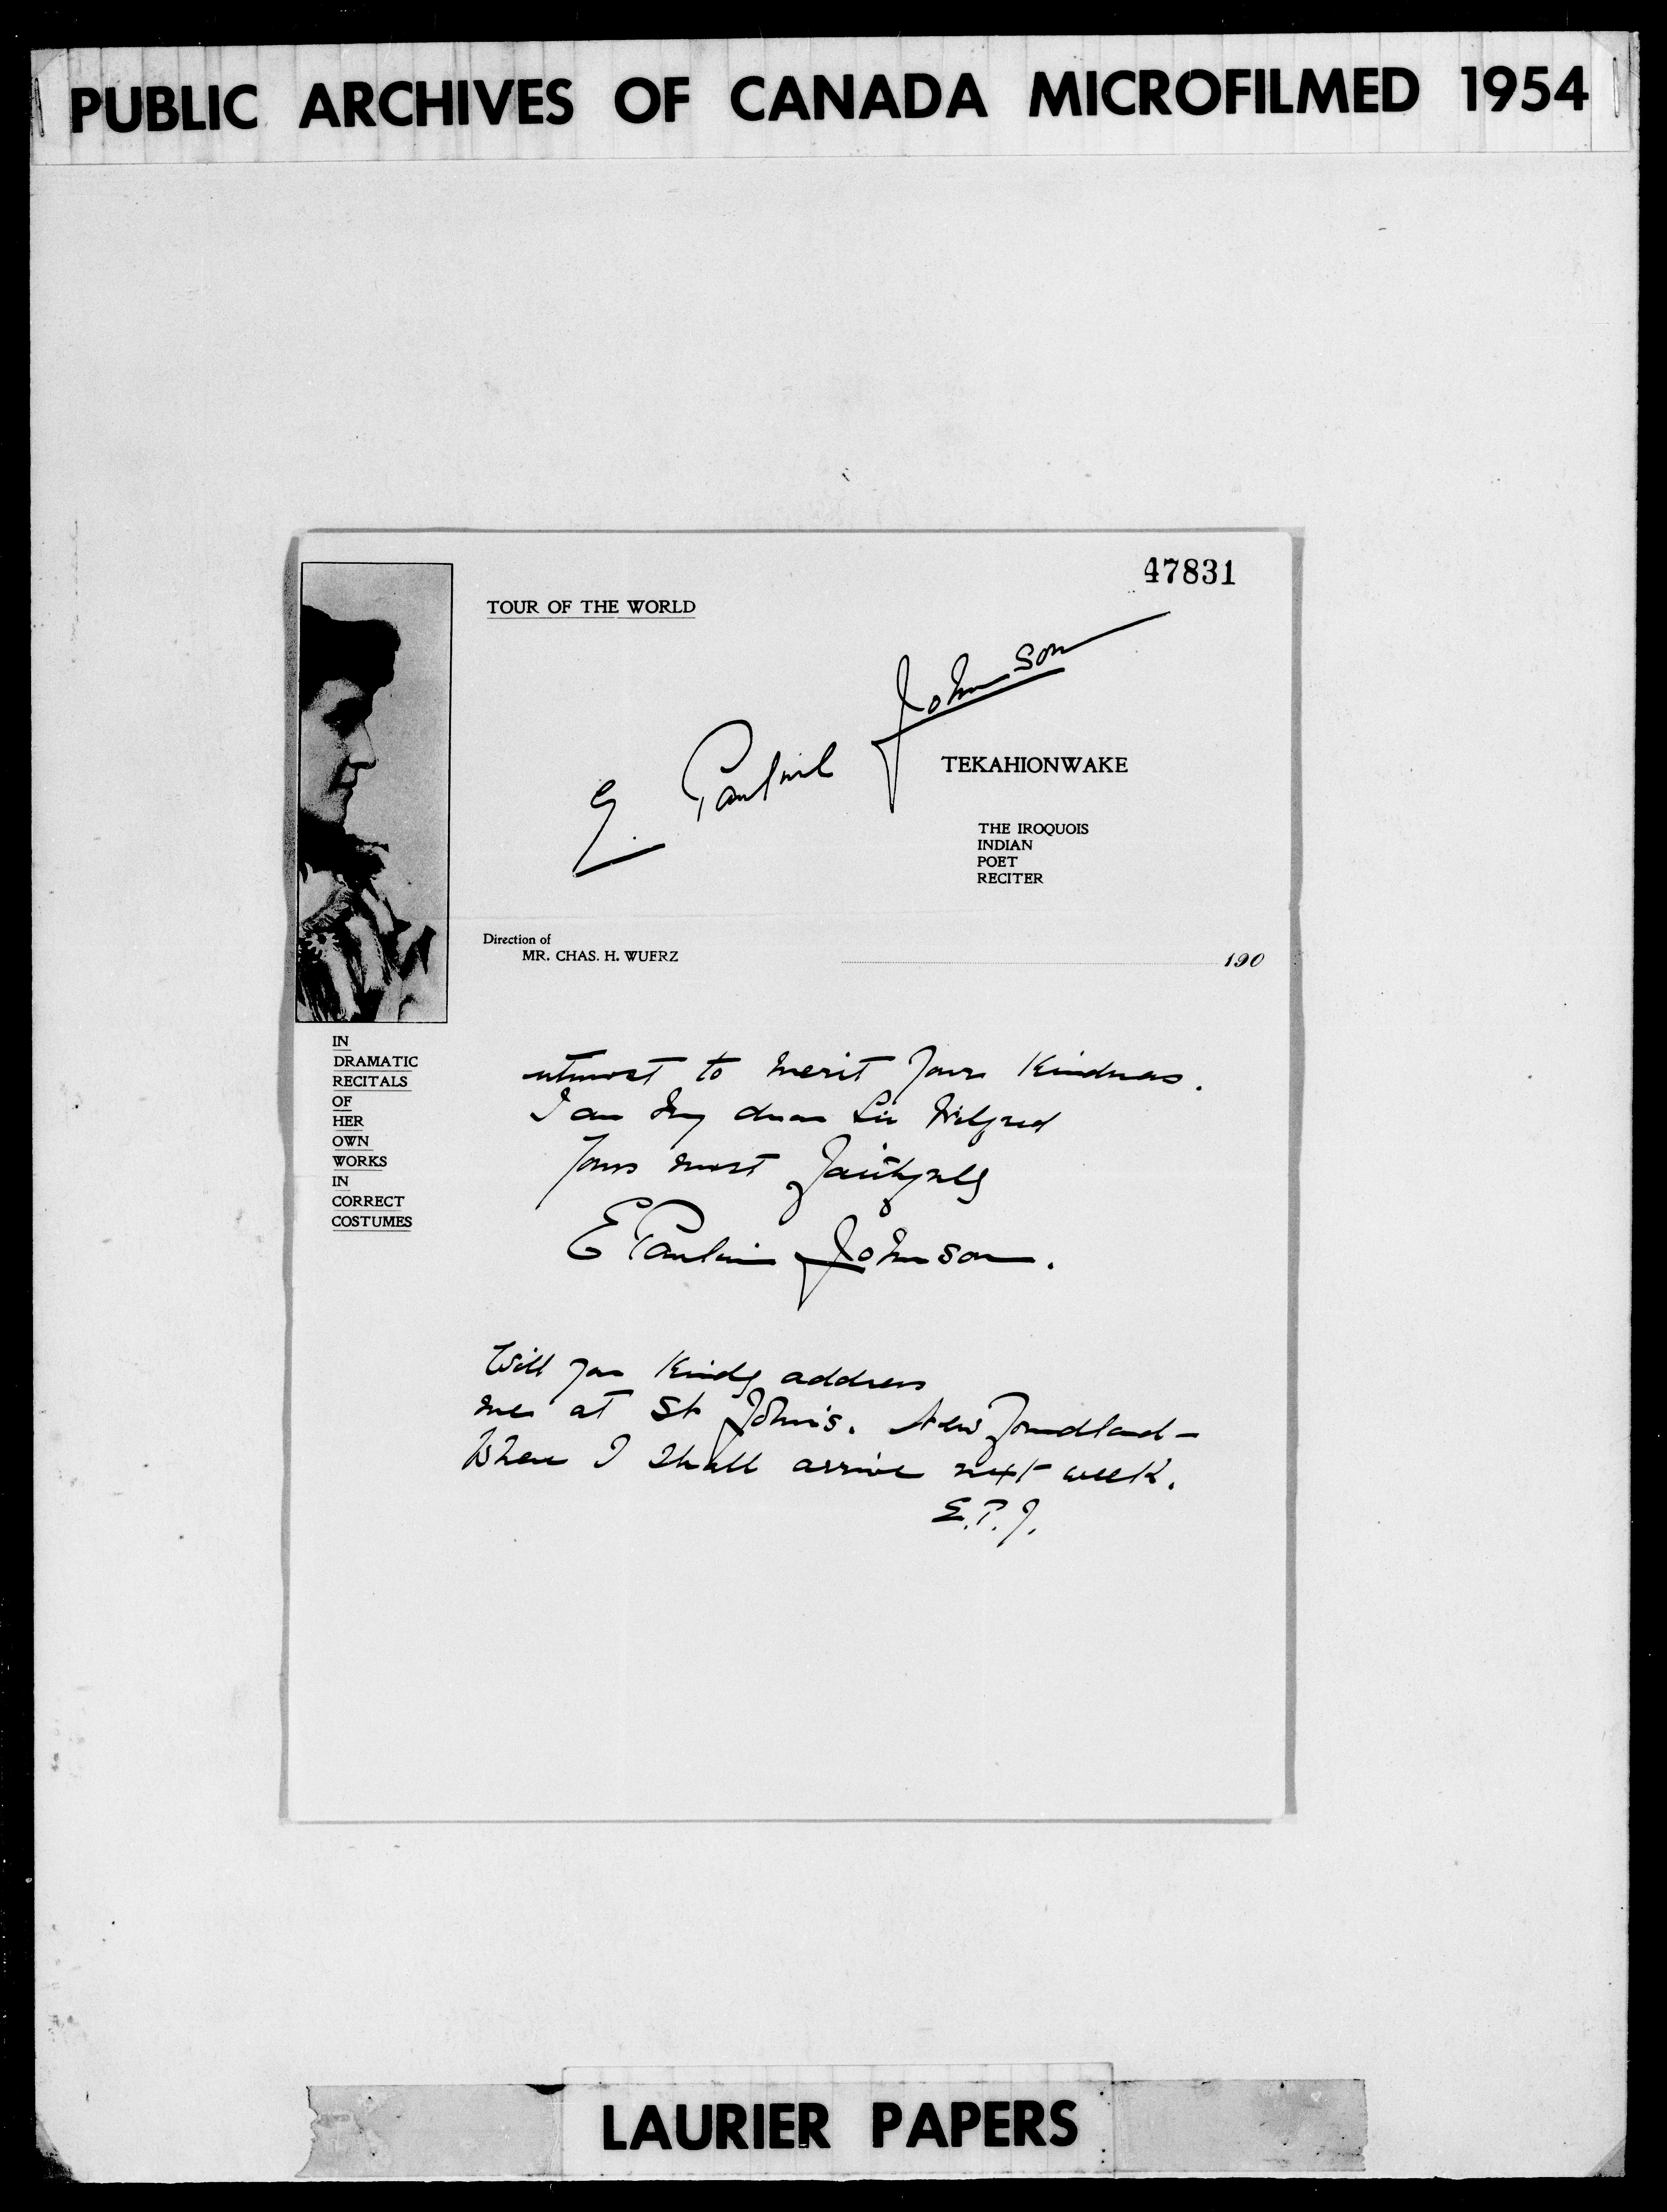 PUBLIC ARCHIVES OF CANADA MICROFILMED 1954
47831
TOUR OF THE WORLD
E. Pauline Johnson
TEKAHIONWAKE
THE IROQUOIS
INDIAN
POET
RECITER
Direction of
MR. CHAS. H. WUERZ
190
IN
DRAMATIC
RECITALS
OF
HER
OWN
WORKS
IN
CORRECT
COSTUMES
utmost to merit your kindness.
I am my dear Sir Wilfred
Yours most faithfully
E Pauline Johnson.
Will you kindly address
me at St John's. Newfoundland -
Where I shall arrive next week.
E.P.J.
LAURIER PAPERS